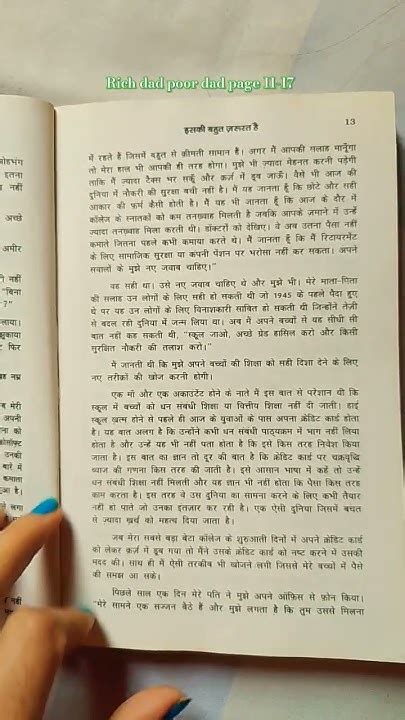 Rich dad poor dad page 11-17
इसकी बहुत ज़रूरत है
13
में रहते हैं जिसमें बहुत से क़ीमती सामान हैं। अगर मैं आपकी सलाह मानूँगा
तो मेरा हाल भी आपकी ही तरह होगा। मुझे भी ज़्यादा मेहनत करनी पड़ेगी
ताकि मैं ज़्यादा टैक्स भर सकूँ और क़र्ज़ में डूब जाऊँ। वैसे भी आज की
दुनिया में नौकरी की सुरक्षा बची नहीं है। मैं यह जानता हूँ कि छोटे और सही
आकार की फ़र्म कैसी होती है। मैं यह भी जानता हूँ कि आज के दौर में
कॉलेज के स्नातकों को कम तनख़्वाह मिलती है जबकि आपके ज़माने में उन्हें
ज़्यादा तनख़्वाह मिला करती थी। डॉक्टरों को देखिए। वे अब उतना पैसा नहीं
कमाते जितना पहले कभी कमाया करते थे। मैं जानता हूँ कि मैं रिटायरमेंट
के लिए सामाजिक सुरक्षा या कंपनी पेंशन पर भरोसा नहीं कर सकता। अपने
सवालों के मुझे नए जवाब चाहिए।"
वह सही था। उसे नए जवाब चाहिए थे और मुझे भी। मेरे माता-पिता
की सलाह उन लोगों के लिए सही हो सकती थी जो 1945 के पहले पैदा हुए
थे पर यह उन लोगों के लिए विनाशकारी साबित हो सकती थी जिन्होंने तेज़ी
से बदल रही दुनिया में जन्म लिया था। अब मैं अपने बच्चों से यह सीधी सी
बात नहीं कह सकती थी, "स्कूल जाओ, अच्छे ग्रेड हासिल करो और किसी
सुरक्षित नौकरी की तलाश करो।"
मैं जानती थी कि मुझे अपने बच्चों की शिक्षा को सही दिशा देने के लिए
नए तरीक़ों की खोज करनी होगी।
एक माँ और एक अकाउंटेंट होने के नाते मैं इस बात से परेशान थी कि
स्कूल में बच्चों को धन संबंधी शिक्षा या वित्तीय शिक्षा नहीं दी जाती। हाई
स्कूल ख़त्म होने से पहले ही आज के युवाओं के पास अपना क्रेडिट कार्ड होता
है। यह बात अलग है कि उन्होंने कभी धन संबंधी पाठ्यक्रम में भाग नहीं लिया
होता है और उन्हें यह भी नहीं पता होता है कि इसे किस तरह निवेश किया
जाता है। इस बात का ज्ञान तो दूर की बात है कि क्रेडिट कार्ड पर चक्रवृद्धि
ब्याज की गणना किस तरह की जाती है। इसे आसान भाषा में कहें तो उन्हें
धन संबंधी शिक्षा नहीं मिलती और यह ज्ञान भी नहीं होता कि पैसा किस तरह
काम करता है। इस तरह वे उस दुनिया का सामना करने के लिए कभी तैयार
नहीं हो पाते जो उनका इंतज़ार कर रही है। एक ऐसी दुनिया जिसमें बचत
से ज़्यादा ख़र्च को महत्व दिया जाता है।
जब मेरा सबसे बड़ा बेटा कॉलेज के शुरुआती दिनों में अपने क्रेडिट कार्ड
को लेकर क़र्ज़ में डूब गया तो मैंने उसके क्रेडिट कार्ड को नष्ट करने में उसकी
मदद की। साथ ही मैं ऐसी तरकीब भी खोजने लगी जिससे मेरे बच्चों में पैसे
की समझ आ सके।
पिछले साल एक दिन मेरे पति ने मुझे अपने ऑफ़िस से फ़ोन किया।
"मेरे सामने एक सज्जन बैठे हैं और मुझे लगता है कि तुम उनसे मिलना